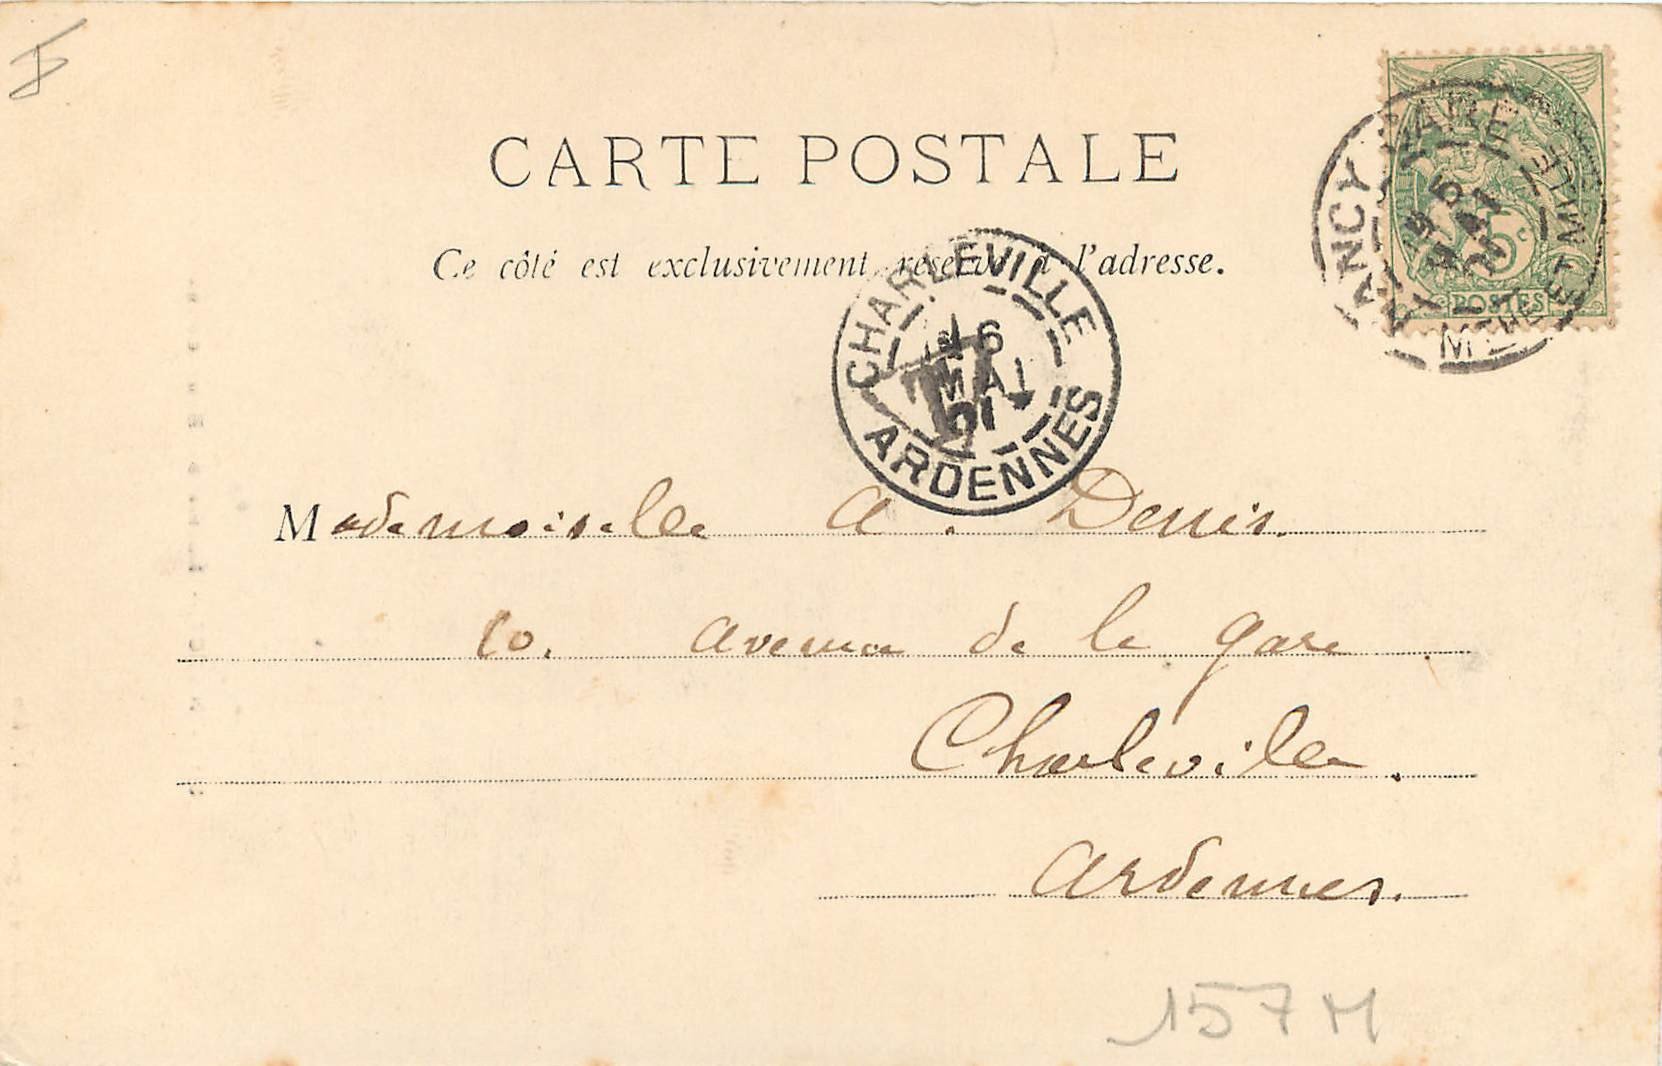 CARTE POSTALE
Ce côté est exclusivement réservé à l'adresse.
NANCY GARE
MTHE ET MELLE
5
MAI
POSTES
5c
CHARLEVILLE
6
MAI
01
ARDENNES
T
Mademoiselle A. Denis.
10. Avenue de la gare
Charleville.
Ardennes.
157 M